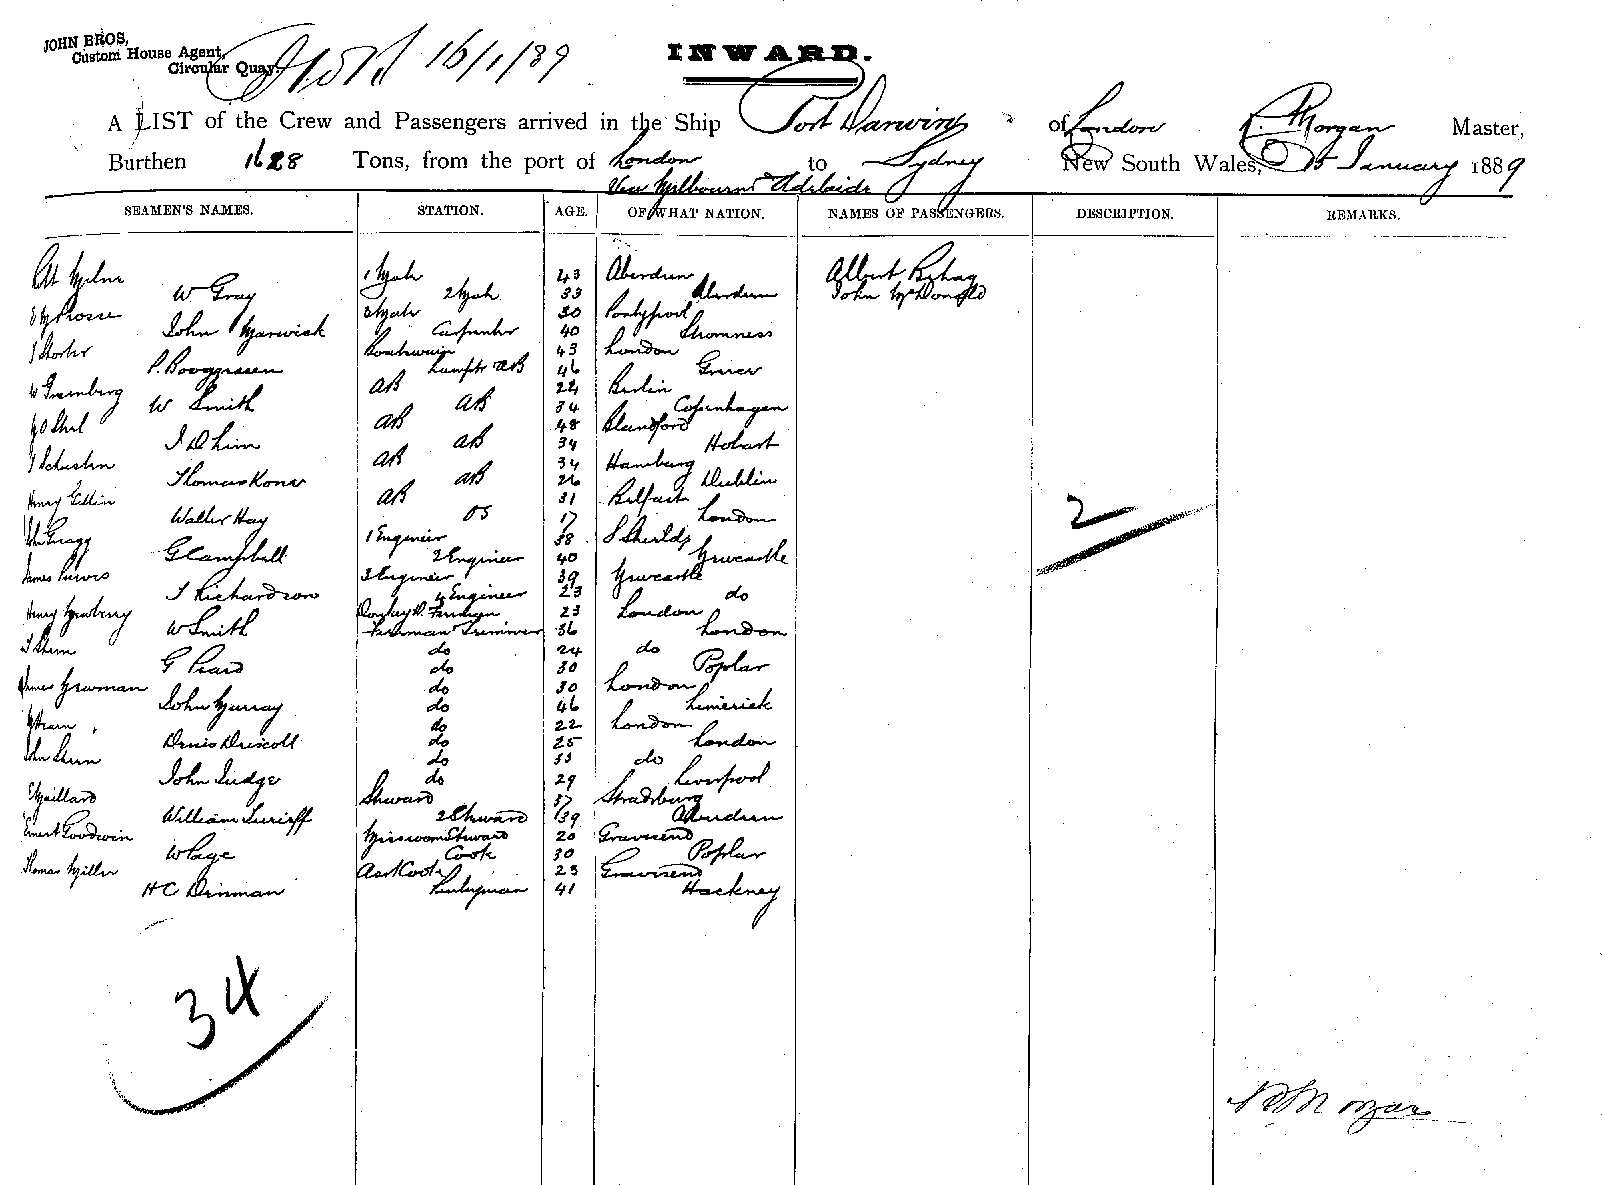 JOHN BROS,
Custom House Agent,
Circular Quay.
16/1/89
INWARD.
A LIST of the Crew and Passengers arrived in the Ship Port Darwin of London R. Morgan Master,
Burthen 1628 Tons, from the port of London to Sydney New South Wales, 15 January 1889
Via Melbourne Adelaide
SEAMEN'S NAMES. STATION. AGE. OF WHAT NATION. NAMES OF PASSENGERS. DESCRIPTION. REMARKS.
Milne 1 Mate 43 Aberdeen Albert
W Gray 2 Mate 33 Aberdeen John McDonald
3 Mate 30 Pontypool
John Marwick Carpenter 40 Stromness
Boatswain 43 London
P. Lamptr AB 46 Greece
W Greenberg AB 22 Berlin
W Smith AB 34 Copenhagen
AB 48 Blandford
AB 34 Hobart
AB 34 Hamburg
Thomas AB 26 Dublin
Henry AB 31 Belfast
Walter Hay OS 17 London
John Gragg 1 Engineer 38 S Shields
G Campbell 2 Engineer 40 Newcastle
James Purvis 3 Engineer 39 Newcastle
T Richardson 4 Engineer 23 do
Henry Newberry Donkeyman 23 London
W Smith Fireman Trimmer 36 London
do 24 do
G Peard do 30 Poplar
James Newman do 30 London
John Murray do 46 Limerick
do 22 London
Denis Driscoll do 25 London
John do 33 do
John Judge do 29 Liverpool
Maillard Steward 37 Strasburg
William 2 Steward 39 Aberdeen
Ernest Goodwin Messroom Steward 20 Gravesend
W Page Cook 30 Poplar
Thomas Miller Asst Cook 23 Gravesend
H C Drisman 41 Hackney
2
34
R Morgan